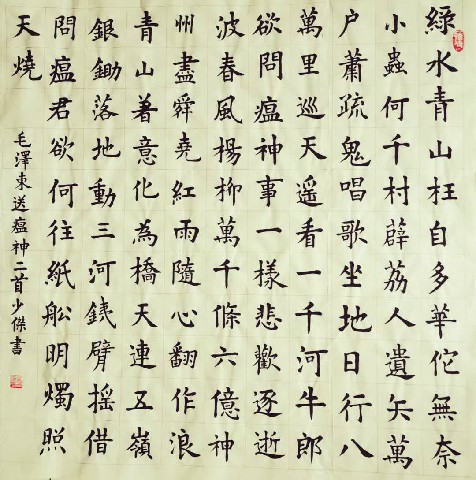 綠水青山枉自多華佗無奈
小蟲何千村薜荔人遺矢萬
户蕭疏鬼唱歌坐地日行八
萬里巡天遥看一千河牛郎
欲問瘟神事一樣悲歡逐逝
波春風楊柳萬千條六億神
州盡舜堯紅雨隨心翻作浪
青山著意化為橋天連五嶺
銀鋤落地動三河銕臂摇借
問瘟君欲何往紙舩明燭照
天燒
毛澤東送瘟神二首少傑書